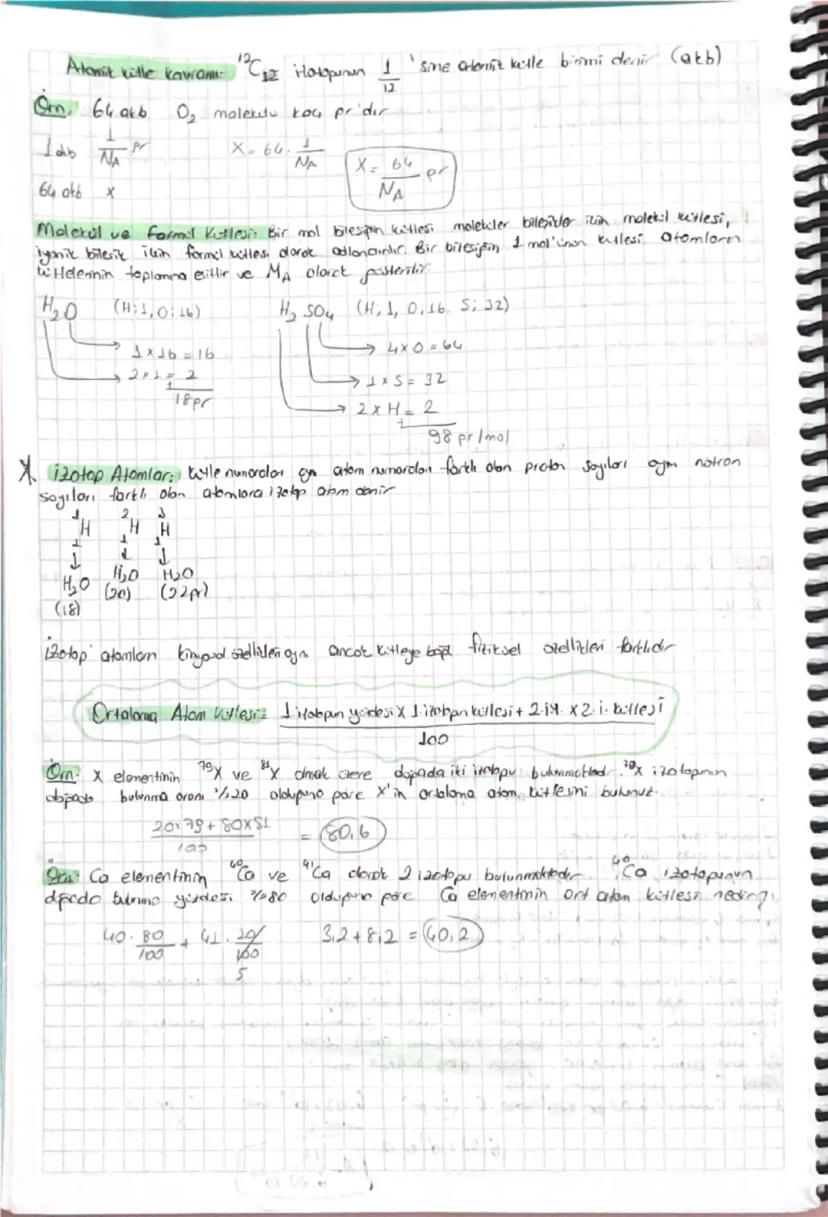 Atomik kütle kavramı: ¹²C₁₂ izotopunun 1/12 'sine atomik kütle birimi denir (akb)
Örn. 64 akb O₂ molekülü kaç gr'dır
1 akb 1/NA gr X = 64 · 1/NA X = 64/NA gr
64 akb x
Molekül ve Formül Kütlesi: Bir mol bileşiğin kütlesi moleküler bileşikler için molekül kütlesi,
iyonik bileşik için formül kütlesi olarak adlandırılır. Bir bileşiğin 1 mol'ünün kütlesi atomların
kütlelerinin toplamına eşittir ve MA olarak gösterilir
H₂O (H:1, O:16) H₂SO₄ (H, 1, O, 16, S: 32)
1 x 16 = 16 4 x O = 64
2 x 1 = 2 1 x S = 32
+ 18 gr 2 x H = 2
+ 98 gr/mol
X izotop Atomlar: kütle numaraları aynı atom numaraları farklı olan proton sayıları aynı nötron
sayıları farklı olan atomlara izotop atom denir
¹₁H ²₁H ³₁H
↓ ↓ ↓
H₂O H₂O H₂O
(18) (20) (22gr)
izotop atomların kimyasal özellikleri aynı ancak kütleye bağlı fiziksel özellikleri farklıdır
Ortalama Atom Kütlesi = 1.izotopun yüzdesi x 1.izotopun kütlesi + 2.i.y. x 2.i. kütlesi
100
Örn: X elementinin ⁷⁹X ve ⁸¹X olmak üzere doğada iki izotopu bulunmaktadır. ⁷⁹X izotopunun
doğada bulunma oranı %20 olduğuna göre X'in ortalama atom kütlesini bulunuz.
20·79 + 80x81 / 100 = 80,6
Örn: Ca elementinin ⁴⁰Ca ve ⁴¹Ca olarak 2 izotopu bulunmaktadır. ⁴⁰Ca izotopunun
doğada bulunma yüzdesi %80 olduğuna göre Ca elementinin ort atom kütlesi nedir?
40 · 80/100 + 41 · 20/100 3,2 + 8,2 = 40,2
5